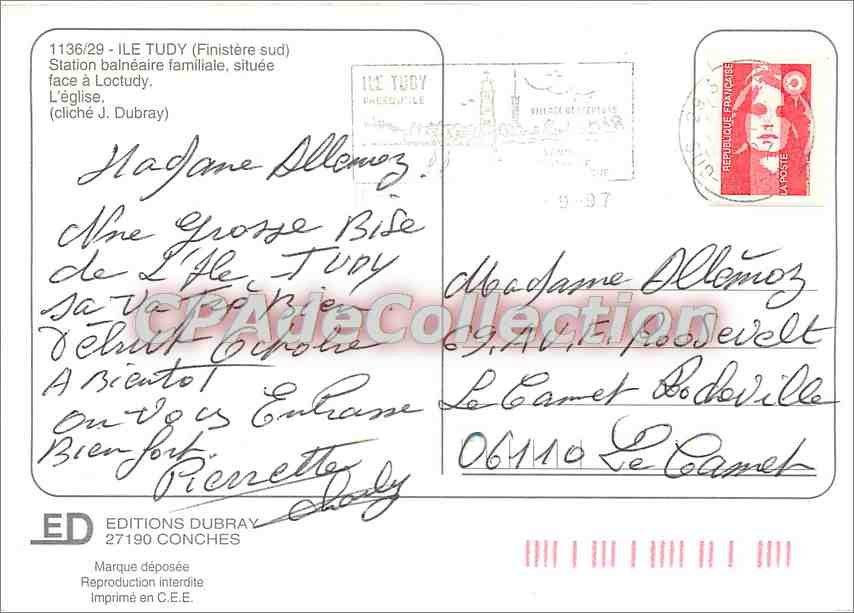 1136/29 - ILE TUDY (Finistère sud)
Station balnéaire familiale, située
face à Loctudy.
L'église.
(cliché J. Dubray)
Madame Allemoz.
Une Grosse Bise
de L'Ile TUDY
sa va Tré Bien
Début Octobre
A Bientot
on vous Enbrasse
Bien fort.
Pierrette
Charly
ILE TUDY
PRESQU'ILE
9-97
REPUBLIQUE FRANÇAISE
LA POSTE
Madame Allemoz
69, AV. F. Roosevelt
Le Cannet Rocheville
06110 Le Cannet
CPAdeCollection
ED
EDITIONS DUBRAY
27190 CONCHES
Marque déposée
Reproduction interdite
Imprimé en C.E.E.